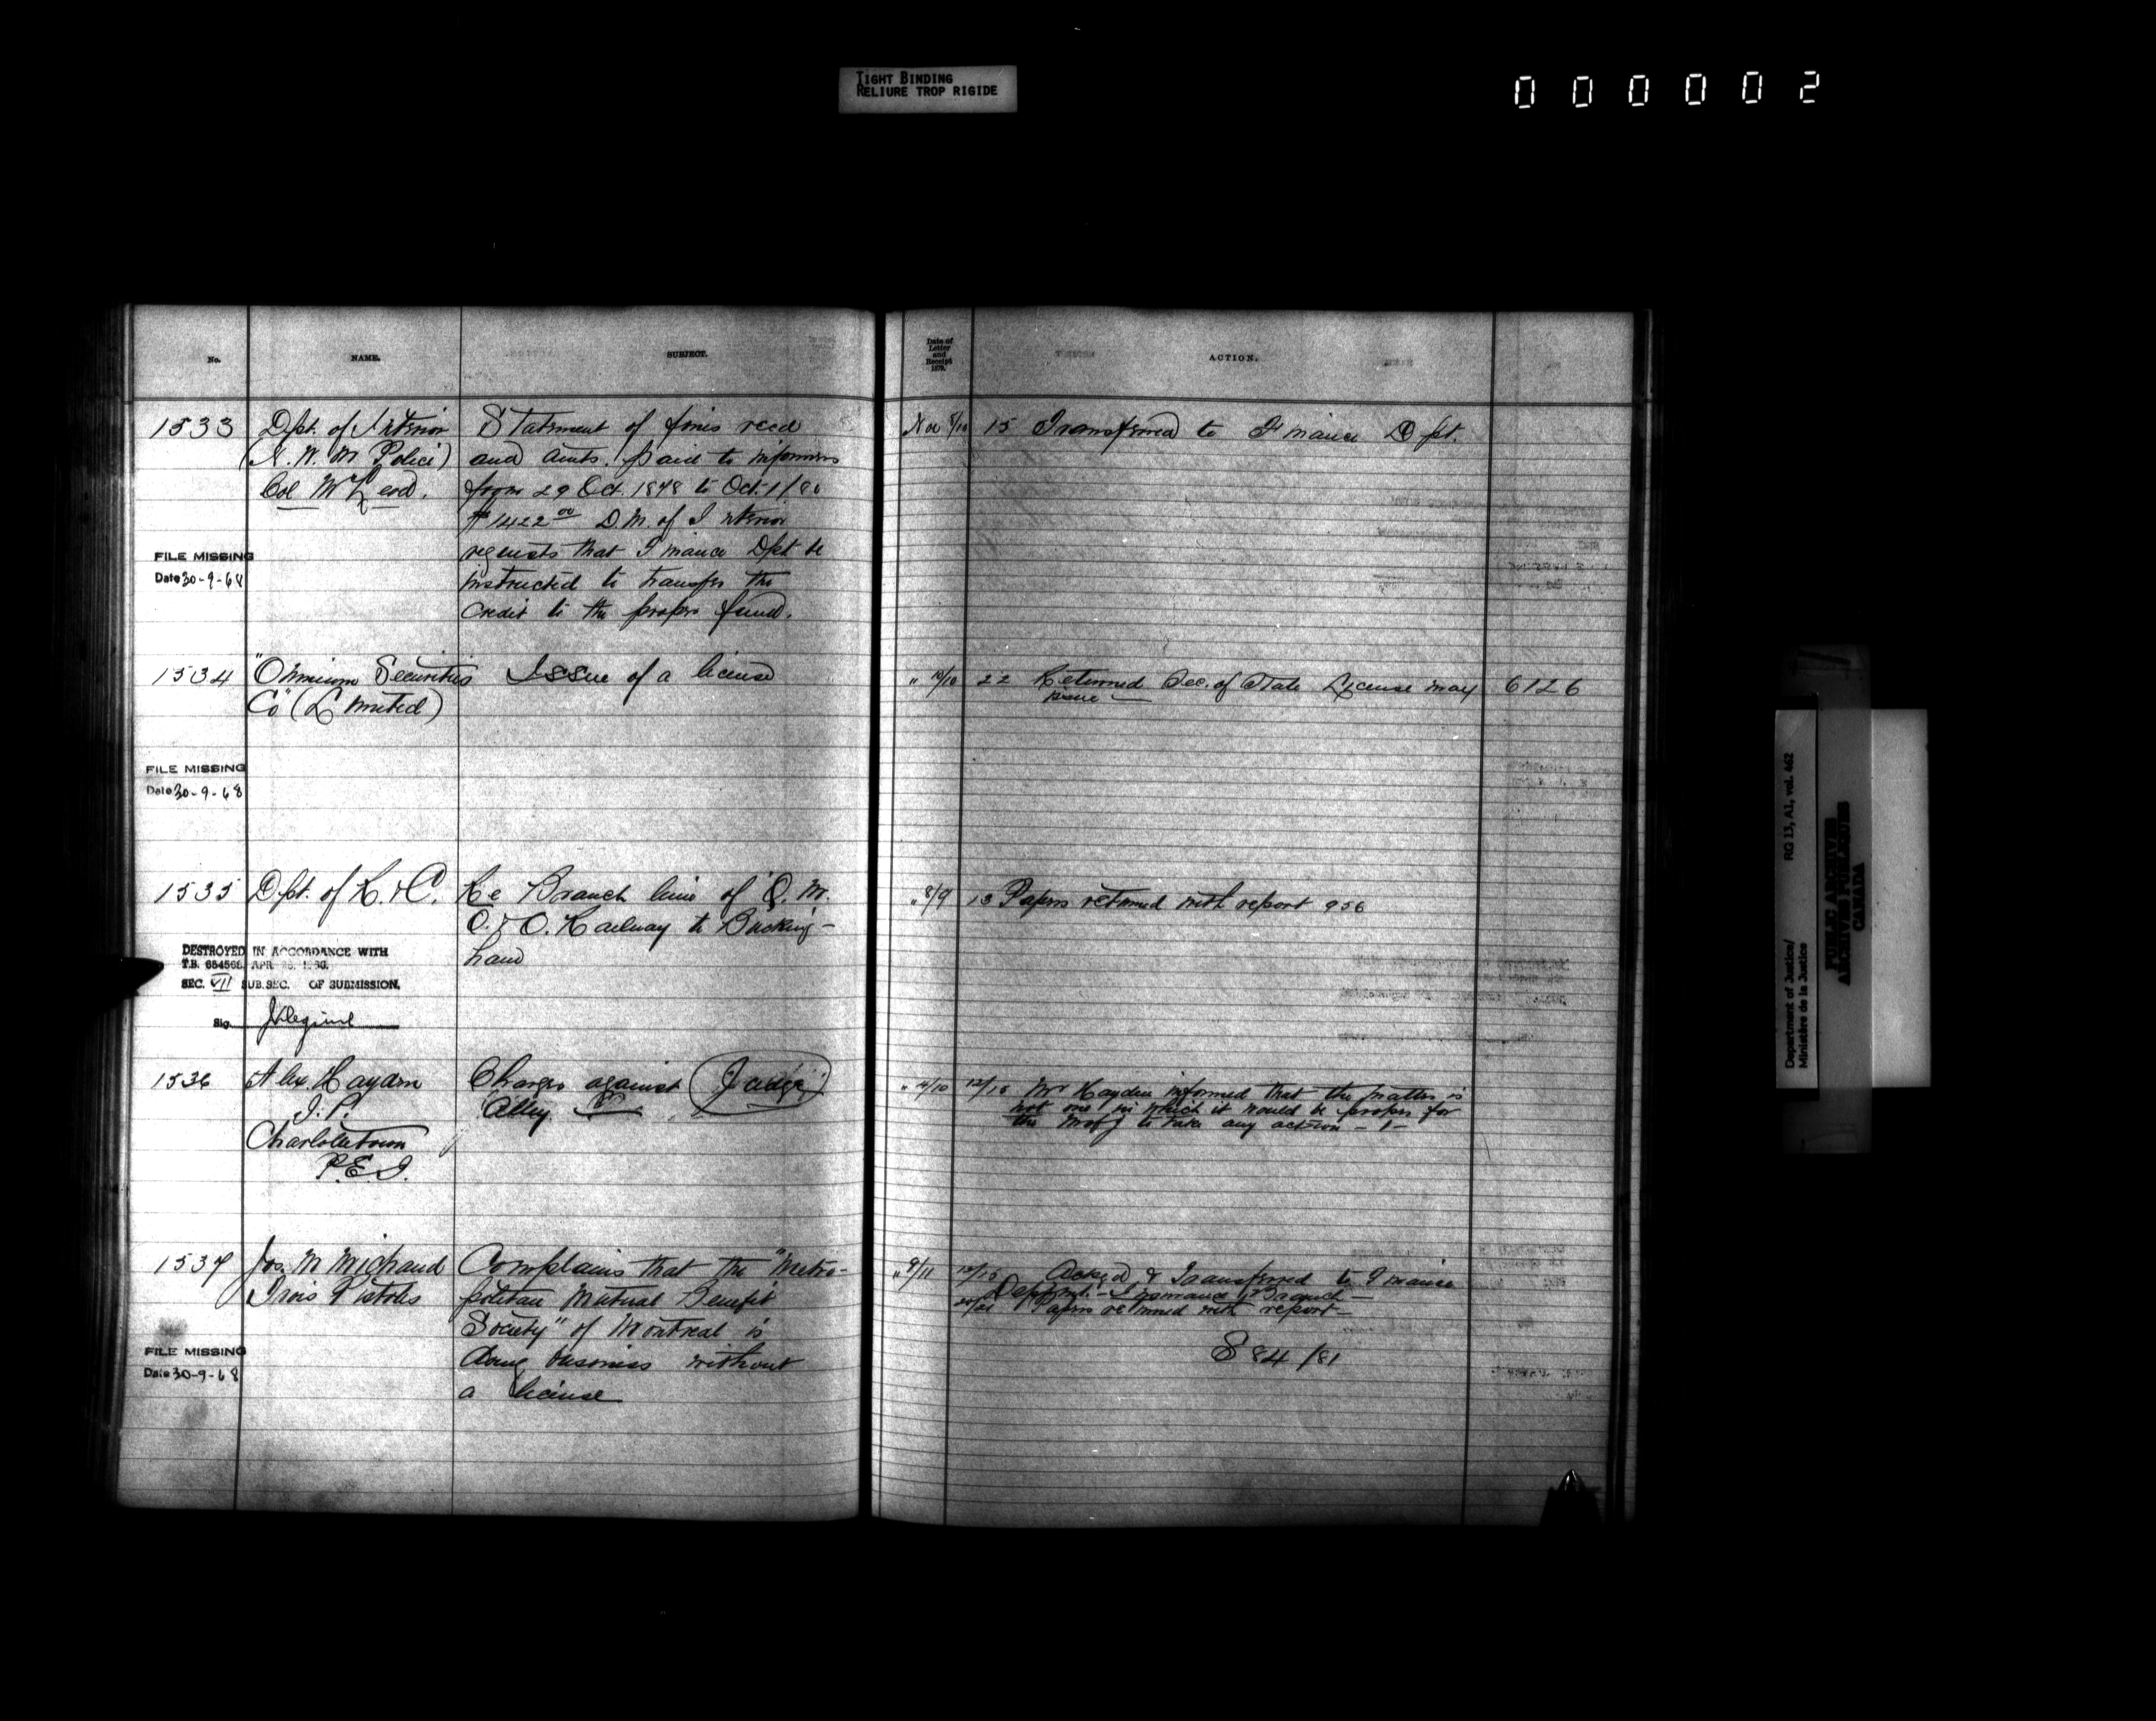 TIGHT BINDING
RELIURE TROP RIGIDE
000002
No.
NAME.
SUBJECT.
Date of
Letter
and
Receipt
1879.
ACTION.
1533
Dpt. of Interior
(N. W. M Police)
Col McLeod.
Statement of fines recd
and amts. paid to informers
from 29 Oct. 1878 to Oct. 1/80
$1422 00 D.M. of Interior
requests that Finance Dpt be
instructed to transfer the
credit to the proper fund.
Nov 8/10
15 Transferred to Finance Dpt.
FILE MISSING
Date 30-9-68
1534
"Omnium Securities
Co" (Limited)
Issue of a license
" 10/10
22 Returned Sec. of State License may
issue
6126
FILE MISSING
Date 30-9-68
1535
Dpt. of R. & C.
Re Branch line of Q. M.
O. & O. Railway to Bucking-
ham
" 8/9
13 Papers returned with report 956
DESTROYED IN ACCORDANCE WITH
T.B. 654566, APR
SEC. VII SUB.SEC. OF SUBMISSION.
Sig.
1536
Alex. Hayden
J. P.
Charlottetown
P.E.I.
Charges against Judge
Alley
12/15 Mr Hayden informed that the matter is
not one in which it would be proper for
the M of J to take any action - 1 -
1537
Jos. M Michaud
Trois Pistoles
Complains that the "Metro-
politan Mutual Benefit
Society" of Montreal is
doing business without
a license
" 9/11
Ackgd & Transferred to Finance
Deptmt. - Insurance Branch -
Papers returned with report -
S 84/81
FILE MISSING
Date 30-9-68
Department of Justice/
Ministère de la Justice
RG 13, A1, vol. 462
PUBLIC ARCHIVES
ARCHIVES PUBLIQUES
CANADA